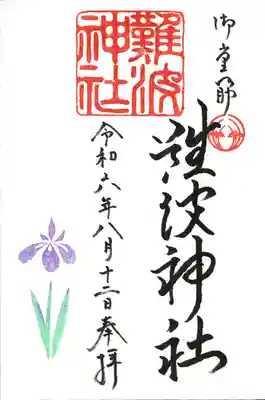 御堂筋
難波神社
難波神社
令和六年八月十二日奉拝